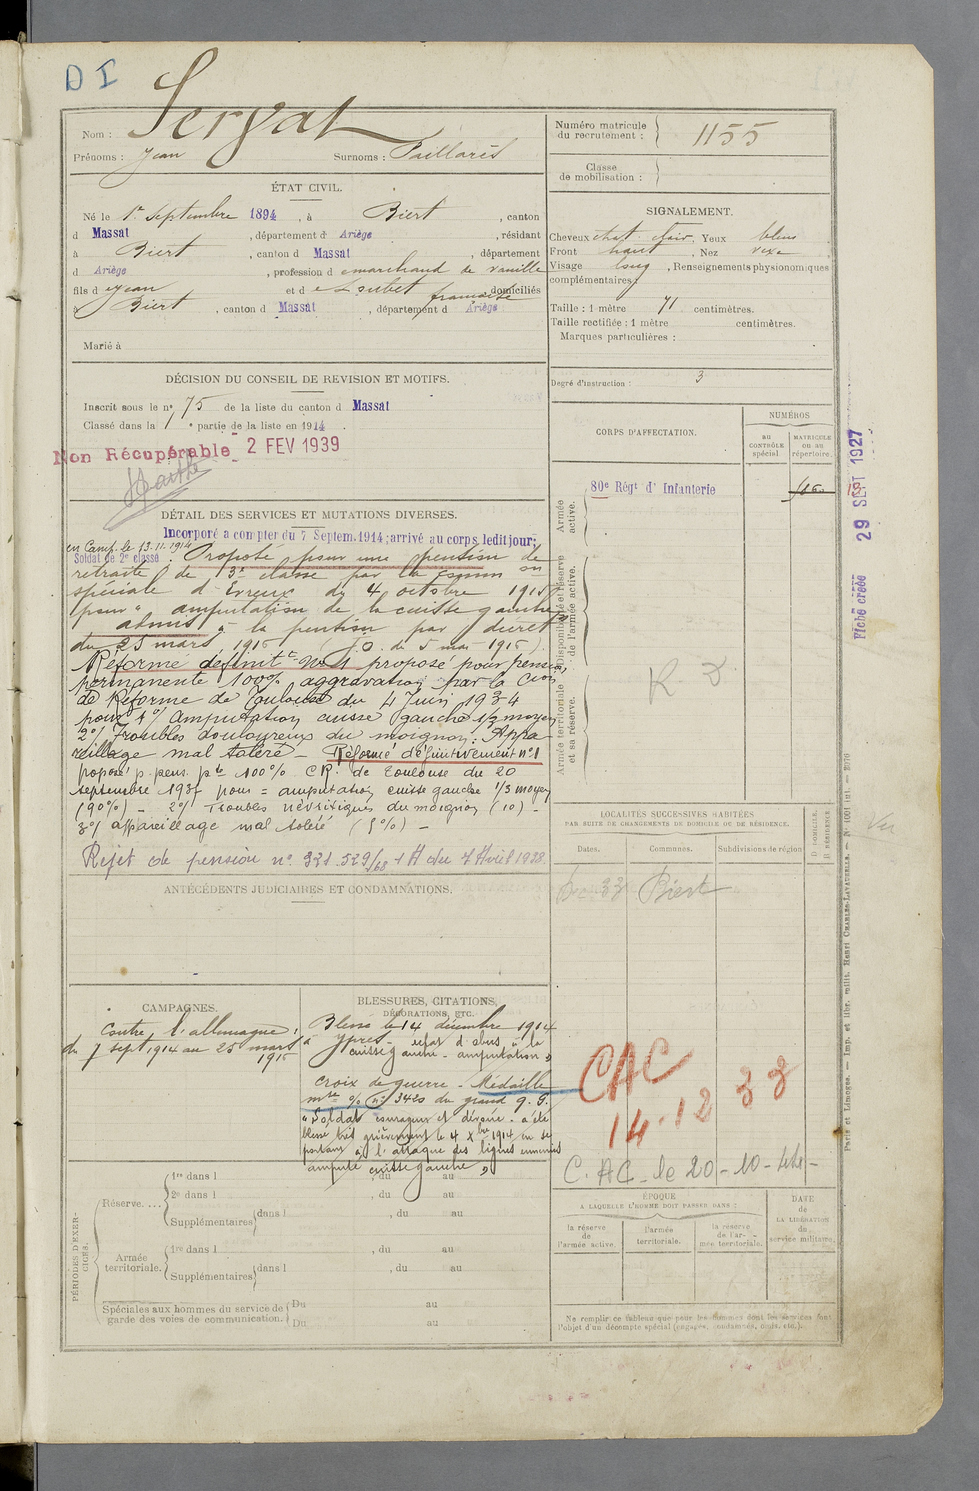 D I
Nom : Servat
Prénoms : Jean Surnoms : Paillarès
ÉTAT CIVIL.
Né le 1er Septembre 1894, à Biert, canton
d Massat, département d Ariège, résidant
à Biert, canton d Massat, département
d Ariège, profession de marchand de vanille
fils d e Jean et d e Loubet françoise domiciliés
à Biert, canton d Massat, département d Ariège
Marié à
DÉCISION DU CONSEIL DE REVISION ET MOTIFS.
Inscrit sous le n° 75 de la liste du canton d Massat
Classé dans la 1e partie de la liste en 1914
Non Récupérable 2 FEV 1939
DÉTAIL DES SERVICES ET MUTATIONS DIVERSES.
Incorporé a compter du 7 Septem. 1914; arrivé au corps ledit jour;
en Camp. le 13.11.1914
Soldat de 2e classe. Proposé pour une pension de
retraite de 3e classe par la Comm on
spéciale d'Evreux du 4 octobre 1915
pour " amputation de la cuisse gauche
admis à la pension par décret
du 25 mars 1916 (J.O. du 5 mai 1916).
Réformé définitt No 1 proposé pour pension
permanente 100% aggravation par la Cion
de Réforme de Toulouse du 4 Juin 1934
pour 1°/ Amputation cuisse gauche 1/3 moyen
2°/ Troubles douloureux du moignon. Appa
reillage mal toléré - Réformé définitivement n°1
proposé p. pens. pte 100% CR. de Toulouse du 20
septembre 1937 pour = amputation cuisse gauche 1/3 moyen
(90%) - 2°/ Troubles névritiques du moignon (10) -
3°/ appareillage mal toléré (5%) -
Rejet de pension n° 321.529/68 1 A du 7 Avril 1938.
ANTÉCÉDENTS JUDICIAIRES ET CONDAMNATIONS.
CAMPAGNES.
Contre l'allemagne
du 7 sept 1914 au 25 mars
1916
BLESSURES, CITATIONS,
DÉCORATIONS, ETC.
Blessé le 14 décembre 1914
à Ypres - eclat d'obus à la
cuisse gauche - amputation "
Croix de guerre - Médaille
mre % n° 3420 du grand Q.G.
"Soldat courageux et dévoué. a été
blessé très grièvement le 4 Xbre 1914 en se
portant à l'attaque des lignes ennemies
amputé cuisse gauche "
PÉRIODES D'EXERCICES.
Réserve....
1re dans l , du au
2e dans l , du au
Supplémentaires dans l , du au
Armée territoriale.
1re dans l , du au
Supplémentaires dans l , du au
Spéciales aux hommes du service de garde des voies de communication.
Du au
Du au
Numéro matricule du recrutement : 1155
Classe de mobilisation :
SIGNALEMENT.
Cheveux chat. clair, Yeux bleus
Front haut, Nez vexe
Visage long, Renseignements physionomiques
complémentaires :
Taille : 1 mètre 71 centimètres.
Taille rectifiée : 1 mètre centimètres.
Marques particulières :
Degré d'instruction : 3
CORPS D'AFFECTATION.
NUMÉROS
AU CONTRÔLE spécial.
MATRICULE OU AU répertoire.
Armée active.
80e Régt d' Infanterie
Disponibilité et réserve de l'armée active.
Armée territoriale et sa réserve.
R. D
LOCALITÉS SUCCESSIVES HABITÉES
PAR SUITE DE CHANGEMENTS DE DOMICILE OU DE RÉSIDENCE.
Dates.
Communes.
Subdivisions de région
D DOMICILE.
R RÉSIDENCE
33 Biert
CAC
14.12 38
C.AC. le 20-10-
ÉPOQUE
A LAQUELLE L'HOMME DOIT PASSER DANS :
la réserve de l'armée active.
l'armée territoriale.
la réserve de l'armée territoriale.
DATE de LA LIBÉRATION du service militaire.
Ne remplir ce tableau que pour les hommes dont les services font
l'objet d'un décompte spécial (engagés, condamnés, omis, etc.).
Fiche créée 29 SEPT 1927
Vu
Paris et Limoges. — Imp. et libr. milit. Henri CHARLES-LAVAUZELLE. —